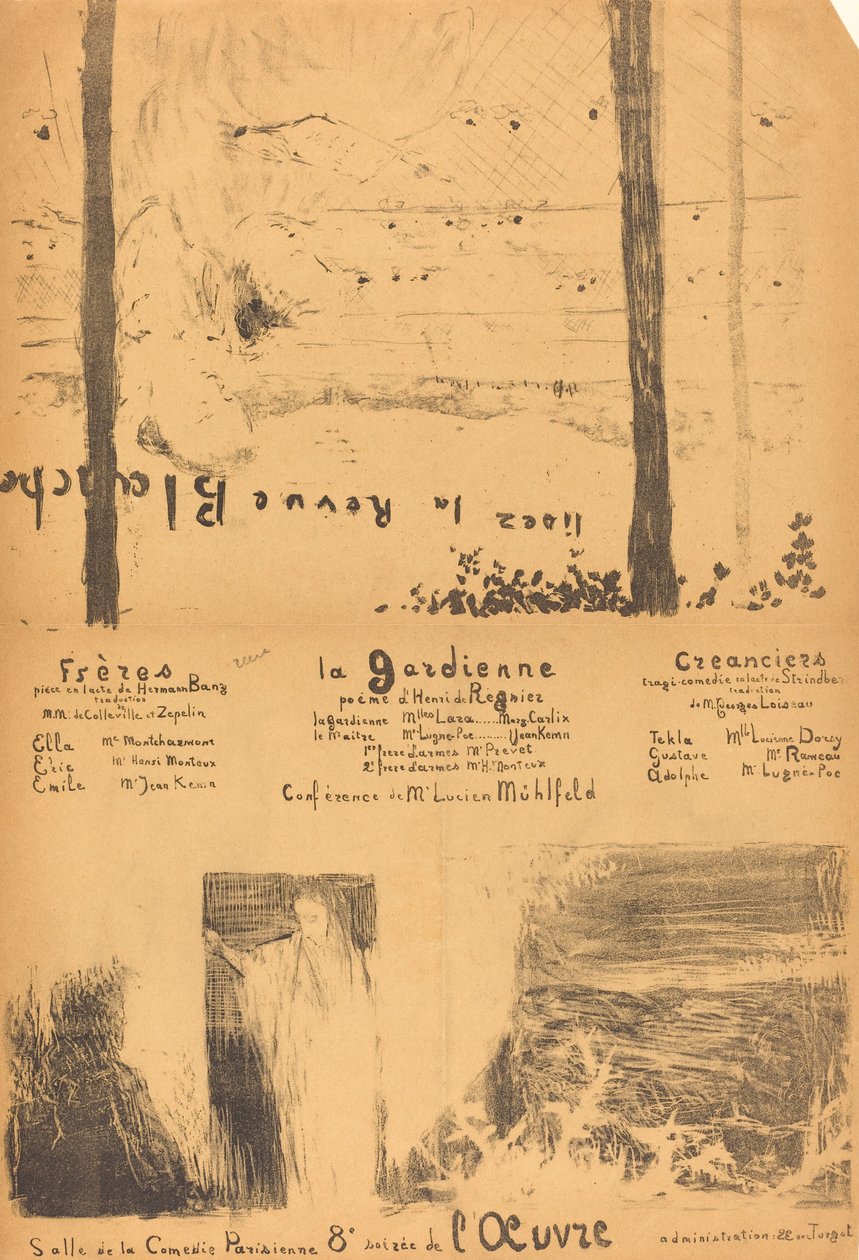 lisez la Revue Blanche
Frères
piece en 1 acte de Hermann Bang
traduction
de
M.M. de Colleville et Zepelin
Ella Me Montcharmont
Eric Mr Henri Monteux
Emile Mr Jean Kemm
la gardienne
poème d'Henri de Regnier
la gardienne Mlles Lara......Marg. Carlix
le Maitre Mr Lugne-Poe.........Jean Kemm
1er frere d'armes Mr Prevet
2e frere d'armes Mr H. Monteux
Conférence de Mr Lucien Mühlfeld
Creanciers
tragi-comedie en 1 acte de Strindber
traduction
de M. Georges Loiseau
Tekla Mlle Lucienne Dorsy
Gustave Mr Rameau
Adolphe Mr Lugné-Poe
Salle de la Comedie Parisienne 8e soirée de l'Œuvre
administration: 22 rue Turgot